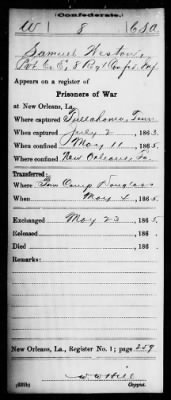 Confederate.
W | 8 | CSA
Samuel Weston,
Pvt Co E, 8 Reg't Confed. Inf.
Appears on a register of
Prisoners of War
at New Orleans, La.
Where captured Tullahoma, Tenn
When captured July 2, 1863.
When confined May 11, 1865.
Where confined New Orleans, La.
Transferred:
Where From Camp Douglass
When May 4, 1865.
Exchanged May 23, 1865.
Released , 186 .
Died , 186 .
Remarks:
New Orleans, La., Register No. 1; page 259
Copyist.